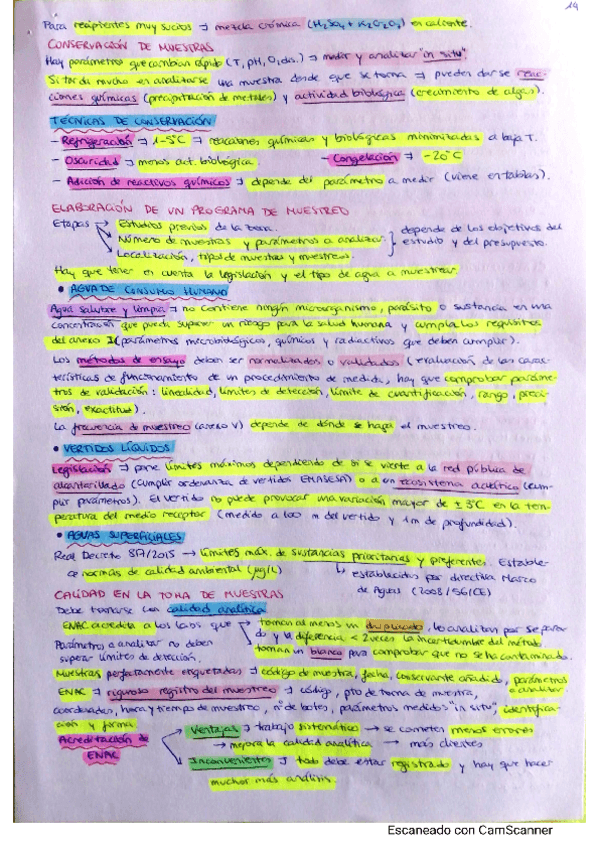 14
Para recipientes muy sucios → mezcla crómica (H2SO4 + K2Cr2O7) en caliente.
CONSERVACIÓN DE MUESTRAS
Hay parámetros que cambian rápido (T, pH, O2 dis.) → medir y analizar "in situ".
Si tarda mucho en analizarse una muestra desde que se toma → pueden darse reac-
ciones químicas (precipitación de metales) y actividad biológica (crecimiento de algas).
TECNICAS DE CONSERVACIÓN
- Refrigeración → 1-5ºC → reacciones químicas y biológicas minimizadas a baja T.
- Oscuridad → menos act. biológica - Congelación → -20ºC
- Adición de reactivos químicos → depende del parámetro a medir (viene en tablas).
ELABORACIÓN DE UN PROGRAMA DE MUESTREO
Etapas → Estudios previos de la zona.
→ Número de muestras y parámetros a analizar. } depende de los objetivos del
→ Localización, tipos de muestras y muestreos. estudio y del presupuesto.
Hay que tener en cuenta la legislación y el tipo de agua a muestrear
• AGUA DE CONSUMO HUMANO
Agua salubre y limpia → no contiene ningún microorganismo, parásito o sustancia en una
concentración que pueda suponer un riesgo para la salud humana y cumpla los requisitos
del anexo I (parámetros microbiológicos, químicos y radiactivos que deben cumplir).
Los métodos de ensayo deben ser normalizados o validados (evaluación de las carac-
terísticas de funcionamiento de un procedimiento de medida, hay que comprobar paráme-
tros de validación: linealidad, límites de detección, límite de cuantificación, rango, preci-
sión, exactitud).
La frecuencia de muestreo (anexo V) depende de dónde se haga el muestreo.
• VERTIDOS LÍQUIDOS
Legislación → pone límites máximos dependiendo de si se vierte a la red pública de
alcantarillado (cumplir ordenanza de vertidos EMASESA) o a un ecosistema acuático (cum-
plir parámetros). El vertido no puede provocar una variación mayor de ± 3ºC en la tem-
peratura del medio receptor (medido a 100 m del vertido y 1m de profundidad).
• AGUAS SUPERFICIALES
Real Decreto 817/2015 → límites máx. de sustancias prioritarias y preferentes. Estable-
ce normas de calidad ambiental (µg/L) ↳ establecidas por directiva Marco
de Aguas (2008/56/CE)
CALIDAD EN LA TOMA DE MUESTRAS
Debe tratarse con calidad analítica
ENAC acredita a los labs que → toman al menos un duplicado, lo analizan por separa-
do y la diferencia < 2 veces la incertidumbre del método
Parámetros a analizar no deben
superar límites de detección. toman un blanco para comprobar que no se ha contaminado.
Muestras perfectamente etiquetadas → código de muestra, fecha, conservante añadido, parámetros
a analizar
ENAC → riguroso registro del muestreo → código, pto de toma de muestra,
coordenadas, hora y tiempo de muestreo, nº de botes, parámetros medidos "in situ", identifica-
ción y firma.
Acreditación de ENAC
Ventajas → trabajo sistemático → se cometen menos errores
→ mejora la calidad analítica → más clientes
Inconvenientes → todo debe estar registrado y hay que hacer
muchos más análisis.
Escaneado con CamScanner